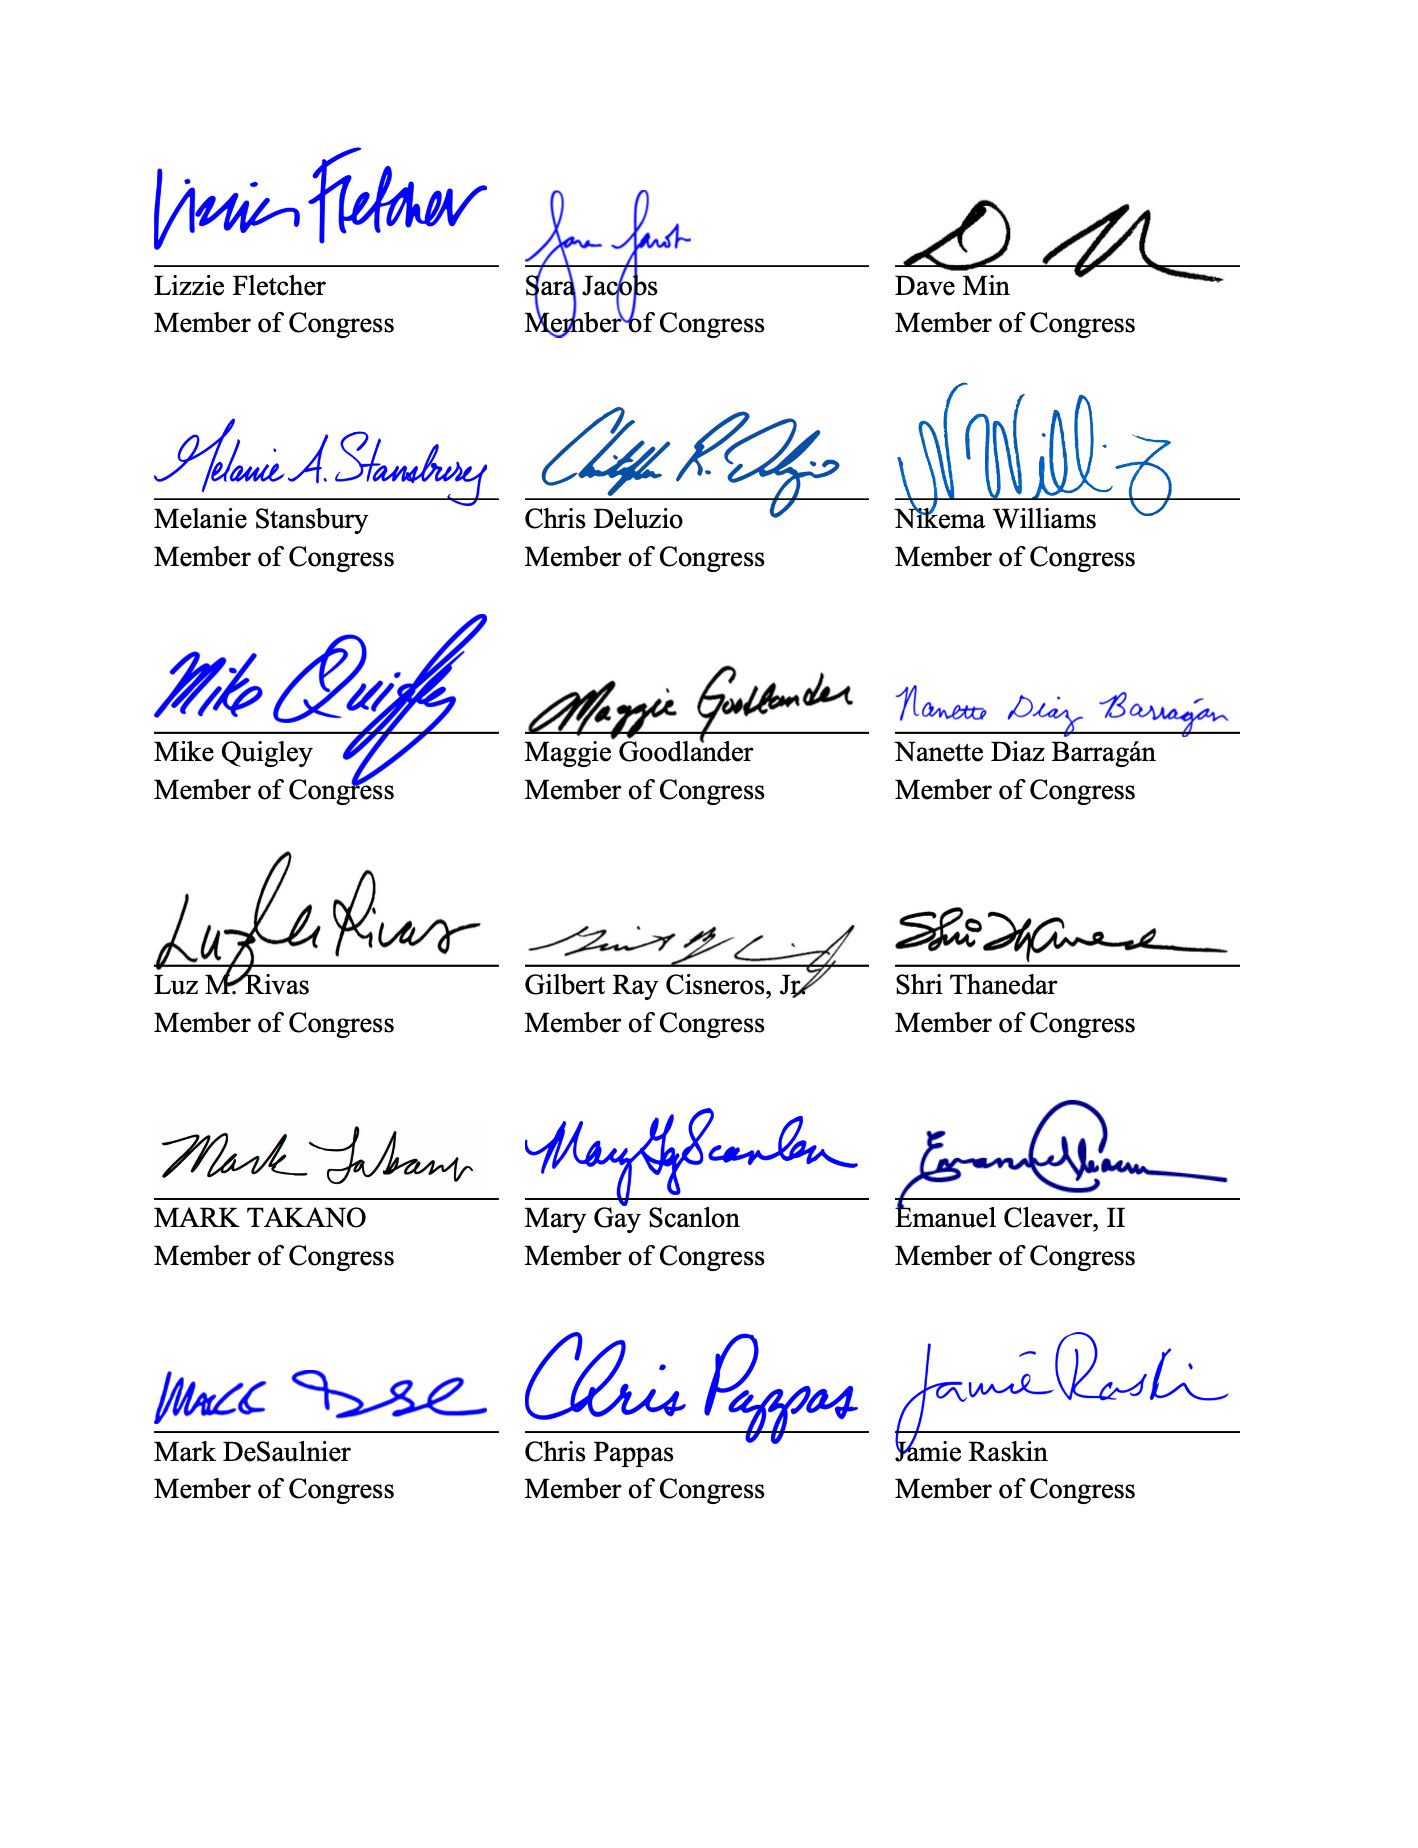 Lizzie Fletcher Sara Jacobs D M
Lizzie Fletcher Sara Jacobs Dave Min
Member of Congress Member of Congress Member of Congress
Melanie A. Stansbury Christopher R. Deluzio N Williams
Melanie Stansbury Chris Deluzio Nikema Williams
Member of Congress Member of Congress Member of Congress
Mike Quigley Maggie Goodlander Nanette Diaz Barragán
Mike Quigley Maggie Goodlander Nanette Diaz Barragán
Member of Congress Member of Congress Member of Congress
Luz Rivas Shri Thanedar
Luz M. Rivas Gilbert Ray Cisneros, Jr. Shri Thanedar
Member of Congress Member of Congress Member of Congress
Mark Takano Mary Gay Scanlon Emanuel Cleaver
MARK TAKANO Mary Gay Scanlon Emanuel Cleaver, II
Member of Congress Member of Congress Member of Congress
Mark Chris Pappas Jamie Raskin
Mark DeSaulnier Chris Pappas Jamie Raskin
Member of Congress Member of Congress Member of Congress